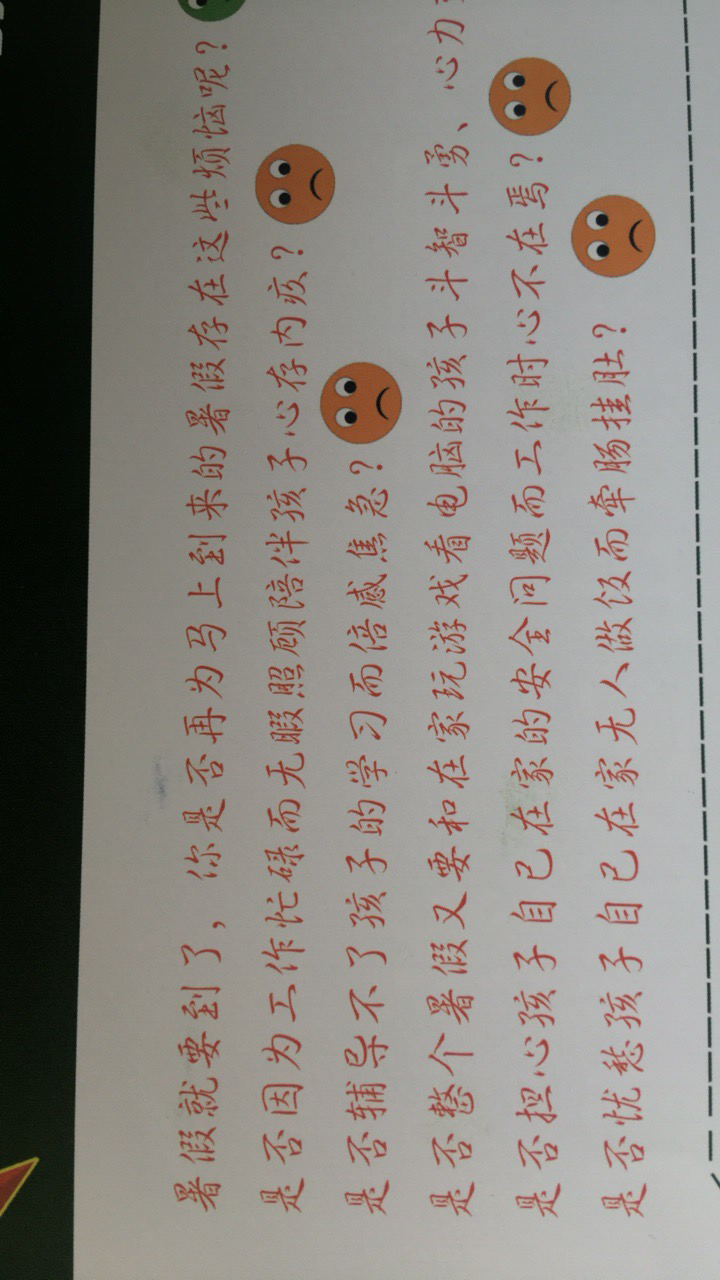 暑假就要到了，你是否再为马上到来的暑假存在这些烦恼呢？
是否因为工作忙碌而无暇照顾陪伴孩子心存内疚？
是否辅导不了孩子的学习而倍感焦急？
是否整个暑假又要和在家玩游戏看电脑的孩子斗智斗勇、心力
是否担心孩子自已在家的安全问题而工作时心不在焉？
是否忧愁孩子自已在家无人做饭而牵肠挂肚？